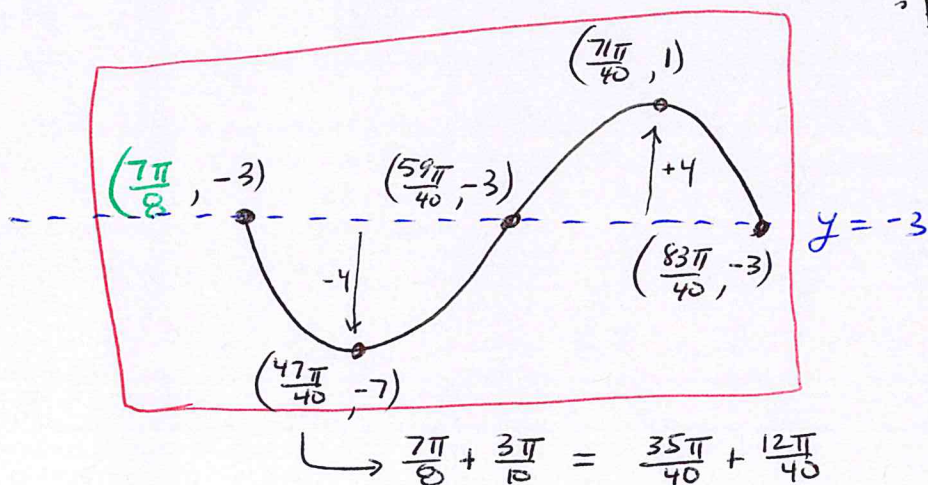 (71π/40, 1)
(7π/8, -3)
(59π/40, -3)
+4
y = -3
-4
(83π/40, -3)
(47π/40, -7)
7π/8 + 3π/10 = 35π/40 + 12π/40